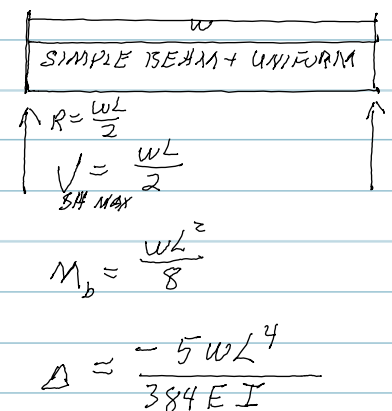 w
SIMPLE BEAM + UNIFORM
R = wL/2
V SH MAX = wL/2
M_b = wL²/8
Δ = -5wL⁴/384EI